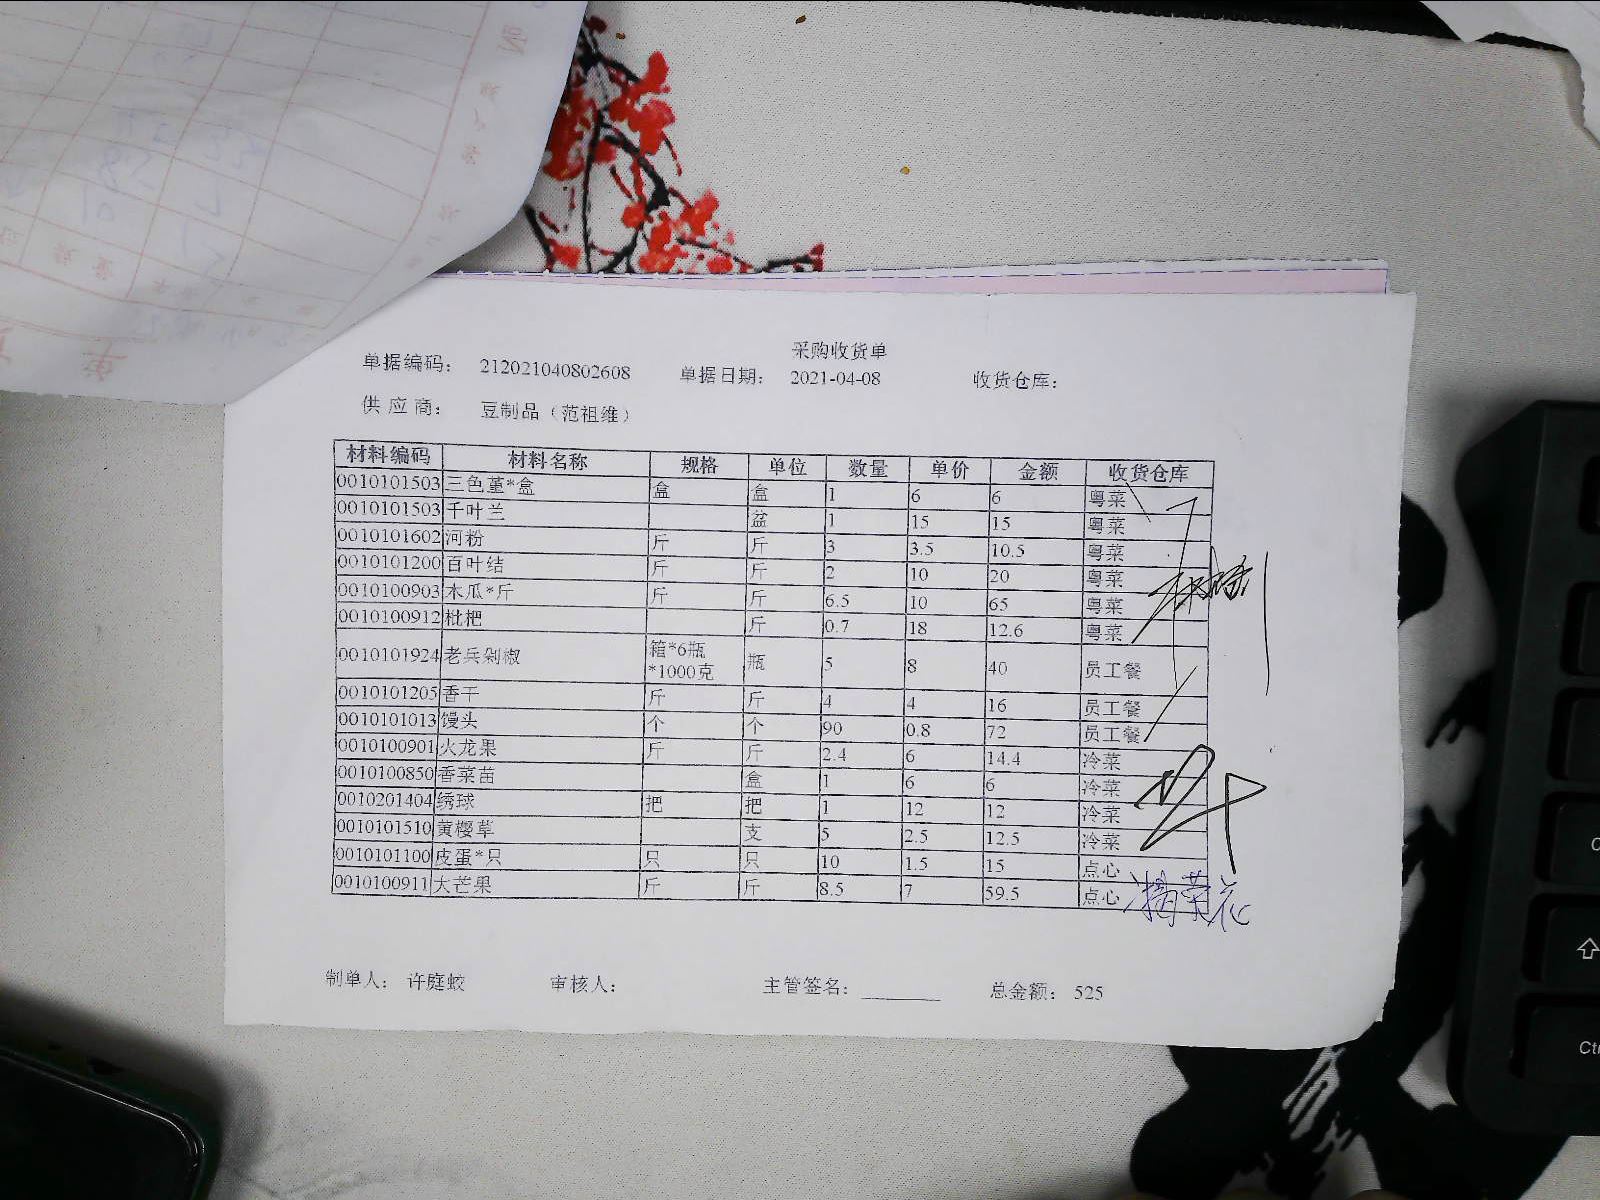 采购收货单
单据编码： 212021040802608 单据日期： 2021-04-08 收货仓库：
供 应 商： 豆制品（范祖维）
材料编码 材料名称 规格 单位 数量 单价 金额 收货仓库
0010101503 三色堇*盒 盒 盒 1 6 6 粤菜
0010101503 千叶兰 盆 1 15 15 粤菜
0010101602 河粉 斤 斤 3 3.5 10.5 粤菜
0010101200 百叶结 斤 斤 2 10 20 粤菜
0010100903 木瓜*斤 斤 斤 6.5 10 65 粤菜
0010100912 枇杷 斤 0.7 18 12.6 粤菜
0010101924 老兵剁椒 箱*6瓶*1000克 瓶 5 8 40 员工餐
0010101205 香干 斤 斤 4 4 16 员工餐
0010101013 馒头 个 个 90 0.8 72 员工餐
0010100901 火龙果 斤 斤 2.4 6 14.4 冷菜
0010100850 香菜苗 盒 1 6 6 冷菜
0010201404 绣球 把 把 1 12 12 冷菜
0010101510 黄樱草 支 5 2.5 12.5 冷菜
0010101100 皮蛋*只 只 只 10 1.5 15 点心
0010100911 大芒果 斤 斤 8.5 7 59.5 点心
制单人： 许庭蛟 审核人： 主管签名： 总金额： 525
Ctr